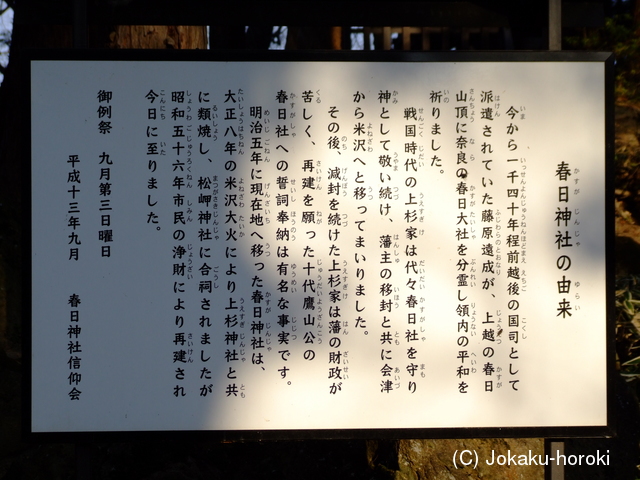 春日神社の由来
今から一千四十年程前越後の国司として
派遣されていた藤原遠成が、上越の春日
山頂に奈良の春日大社を分霊し領内の平和を
祈りました。
戦国時代の上杉家は代々春日社を守り
神として敬い続け、藩主の移封と共に会津
から米沢へと移ってまいりました。
その後、減封を続けた上杉家は藩の財政が
苦しく、再建を願った十代鷹山公の
春日社への誓詞奉納は有名な事実です。
明治五年に現在地へ移った春日神社は、
大正八年の米沢大火により上杉神社と共
に類焼し、松岬神社に合祠されましたが
昭和五十六年市民の浄財により再建され
今日に至りました。
御例祭 九月第三日曜日
平成十三年九月 春日神社信仰会
(C) Jokaku-horoki